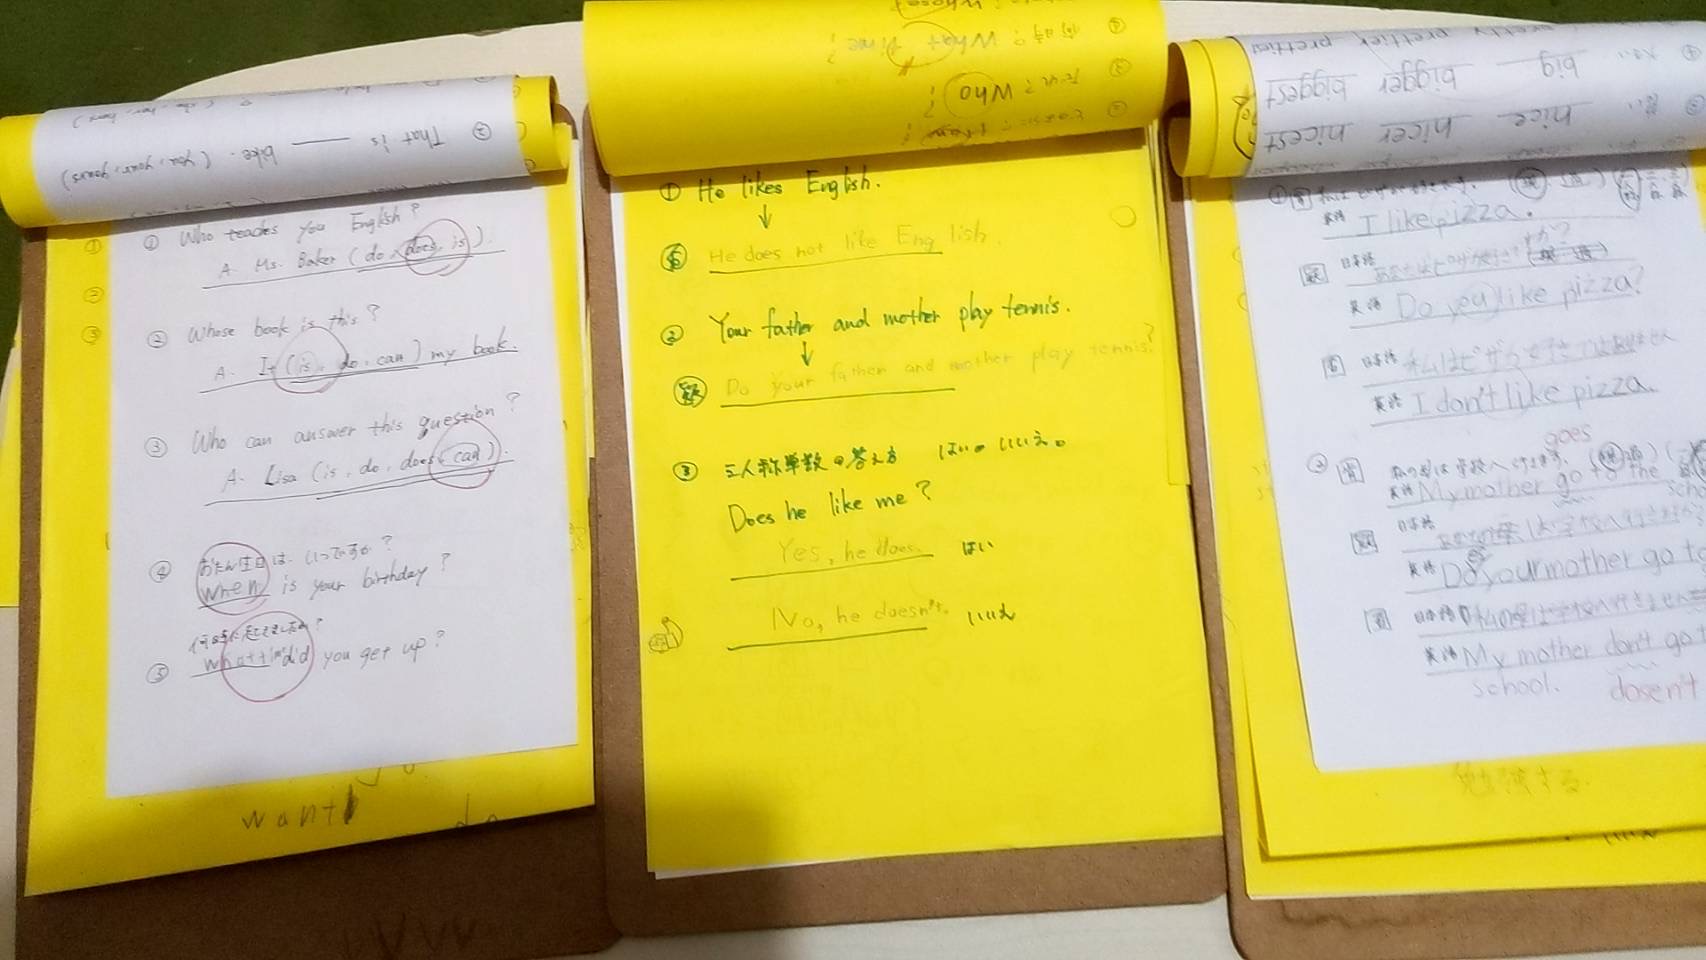 ② That is ___ bike. (you, your, yours)
① Who teaches you English?
A. Ms. Baker (do, does, is).
② Whose book is this?
A. It (is, do, can) my book.
③ Who can answer this question?
A. Lisa (is, do, does, can).
④ おたん生日は、いつですか?
When is your birthday?
⑤
What time did you get up?
want
何時? What time?
だれ? Who ?
① He likes English.
↓
He does not like English.
② Your father and mother play tennis.
↓
疑 Do your father and mother play tennis?
③ 三人称単数の答え方 はい。いいえ。
Does he like me?
Yes, he does. はい
No, he doesn't. いいえ
pretty prettier prettiest
big bigger biggest
nice nicer nicest
英語 I like pizza.
疑 日本語
英語 Do you like pizza?
否 日本語 私はピザが好きではありません
英語 I don't like pizza.
goes
② 肯 私の母は学校へ行きます。
英語 My mother go to the
疑 日本語 あなたの母は学校へ行きますか
es
英語 Do your mother go to
否 日本語 私の母は学校へ行きません
英語 My mother don't go
school. dosen't
勉強する